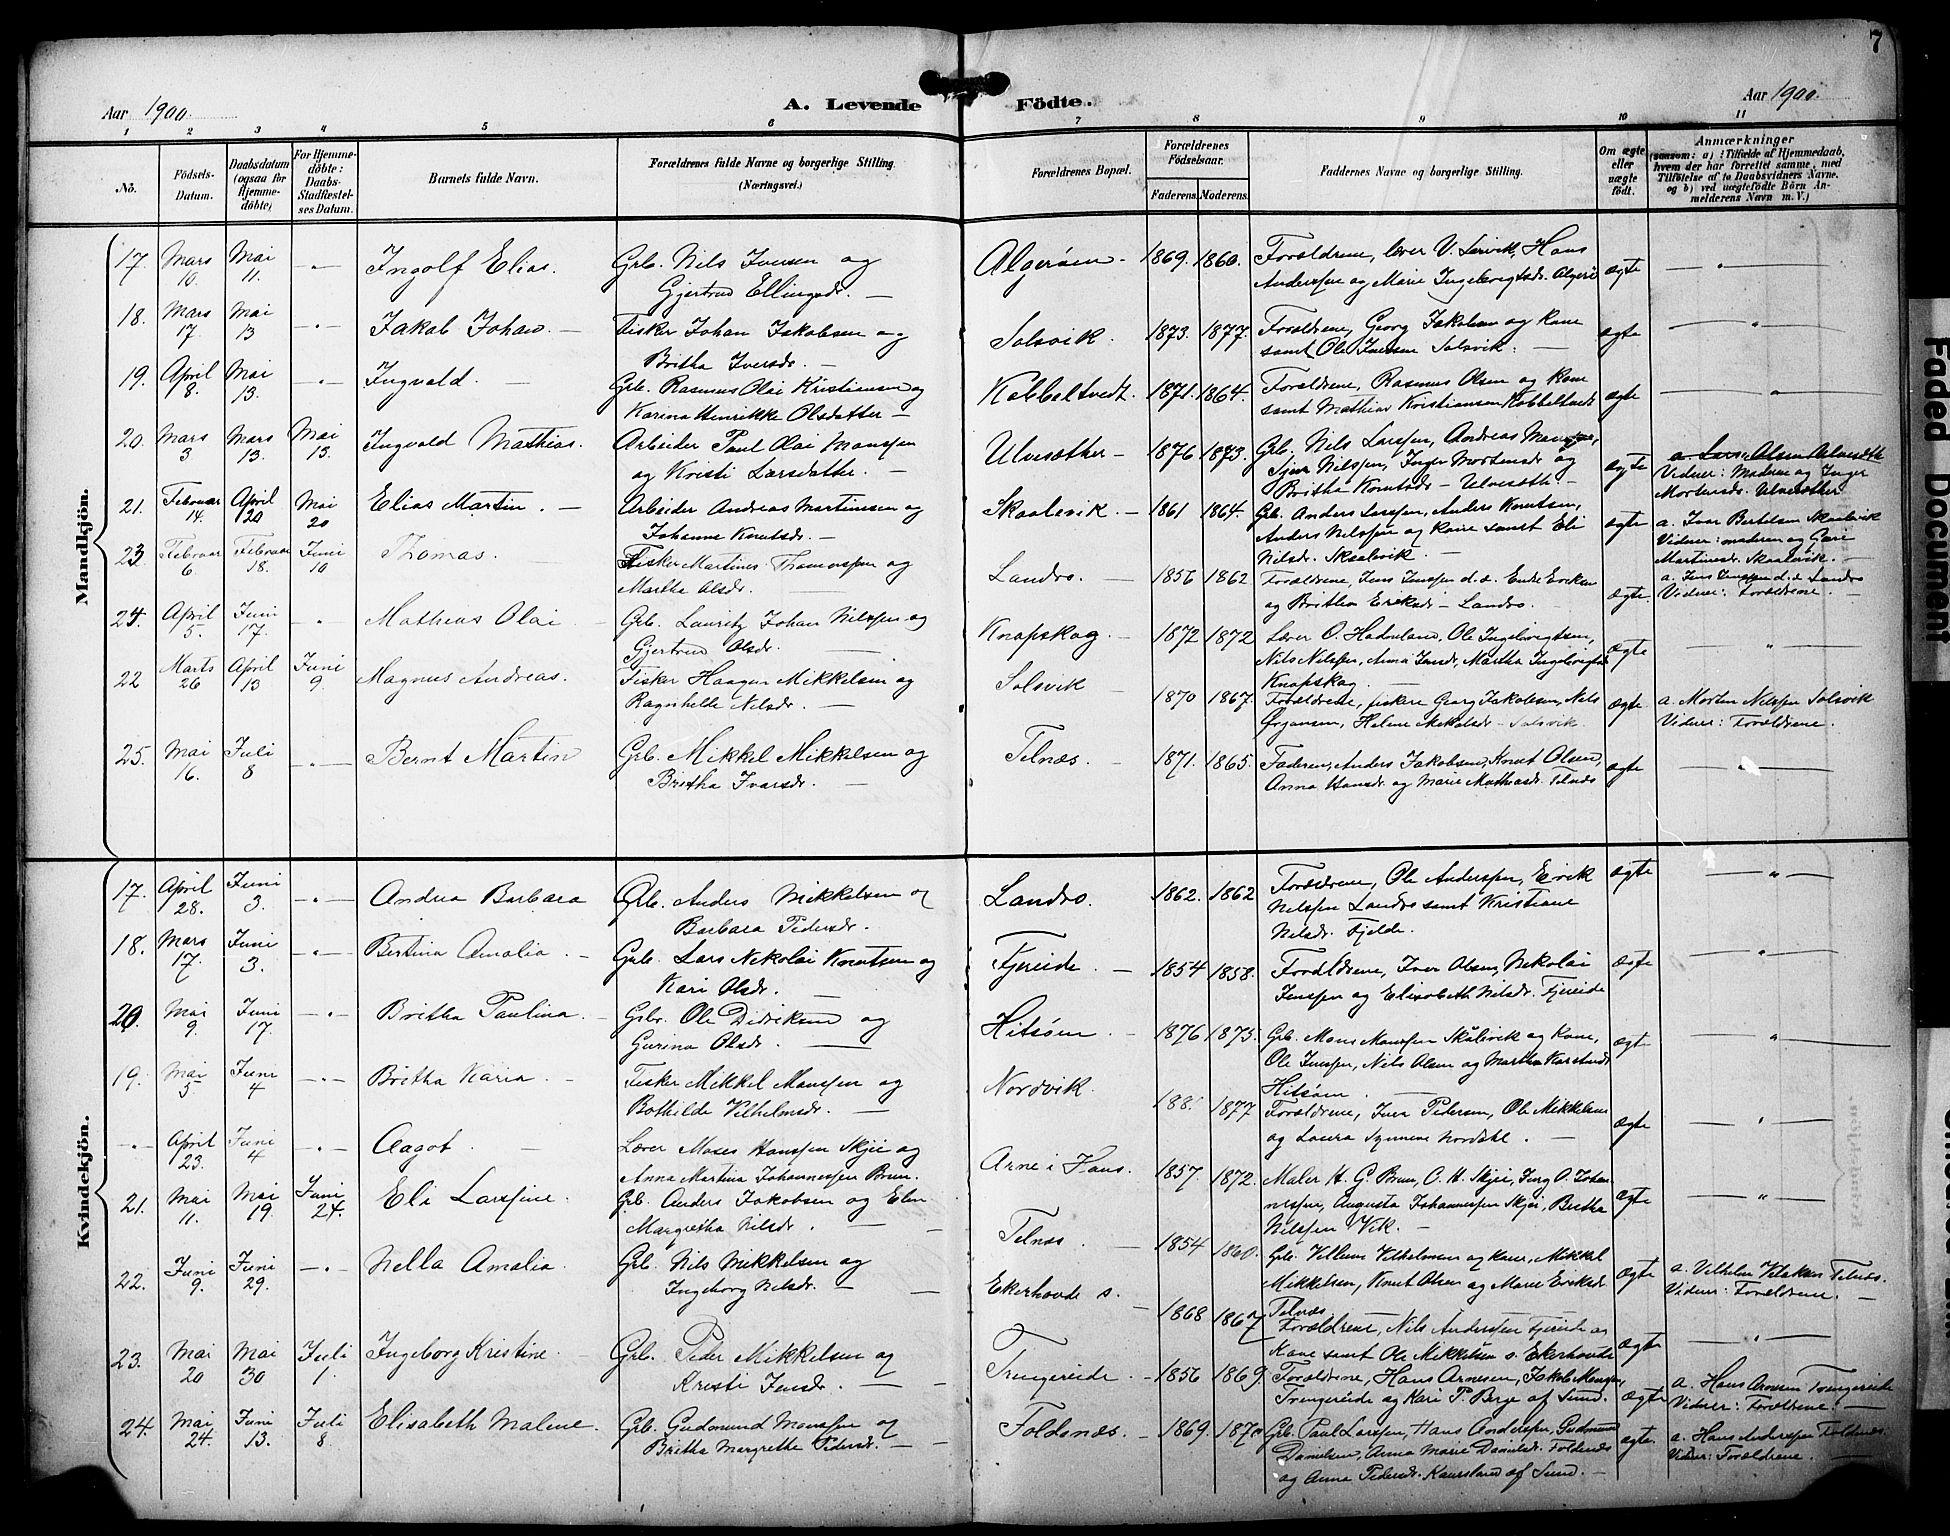 7
Aar 1900.
A. Levende Födte.
Aar 1900.
1 2 3 4 5 6 7 8 9 10 11
No.
Födsels-Datum.
Daabsdatum (ogsaa for Hjemmedöbte)
For Hjemmedöbte: Daabs-Stadfæstelses Datum.
Barnets fulde Navn.
Forældrenes fulde Navne og borgerlige Stilling.
(Næringsvei.)
Forældrenes Bopæl.
Forældrenes Födselsaar.
Faderens. Moderens.
Faddernes Navne og borgerlige Stilling.
Om ægte eller uægte födt.
Anmærkninger
(saasom: a) i Tilfælde af Hjemmedaab,
hvem der har forrettet samme, med
Tilföielse af to Daabsvidners Navne.
og b) ved uægtefödte Börn An-
melderens Navn m. V.)
Mandkjön.
17. Mars 10. Mai 11. Ingolf Elias. Grb. Nils Iversen og
Gjertrud Ellingsdr. — Algerøen — 1869. 1860. Forældrene, Lærer V. Lervik, Hans
Anderssen og Marie Ingebrigtsdr. Algerø ægte
18. Mars 17. Mai 13 Jakob Johan — Fisker Johan Jakobsen og
Britha Iversdr. — Solsvik. 1873. 1877. Forældrene, Georg Jakobsen og Kone
samt Ole Iversen Solsvik. — ægte
19. April 8. Mai 13. Ingvald. — Grb. Rasmus Olai Kristiansen og
Karina Henrikke Olsdatter — Kobbeltvedt. 1871. 1864. Forældrene, Rasmus Olsen og Kone
samt Mathias Kristiansen Kobbeltvedt ægte
20. Mars 3 Mars 13. Mai 13. Ingvald Mathias. Arbeider Paul Olai Monssen
og Kristi Larsdatter. — Ulvesæther — 1876 1873. Grb. Nils Larssen, Andreas Monssen,
Sjur Nilssen, Inger Mortensdr og
Britha Knutsdr — Ulvesæth — ægte
Vidner: Moderen og Inger
Mortensdr. Ulvesæther
21. Februar 14. April 20 Mai 20 Elias Martin. — Arbeider Andreas Martinussen og
Johanne Knutsdr. — Skaalevik — 1861 1864. Grb. Anders Larssen, Anders Knutsen,
Anders Nilssen og Kone samt Eli
Nilsdr. Skaalvik. — ægte a. Ivar Bertelsen Skaalevik
Vidner: moderen og Guri
Martinusdr. Skaalevik. —
23 Februar 6 Februar 18. Juni 10 Thomas. Fisker Martines Thomassen og
Martha Olsdr. Landro. — 1856 1862 Forældrene, Jens Jenssen d.æ. Endre Eriksen
og Britha Eriksdr — Landro. — ægte. a. Jens Jenssen d.æ Landro
Vidner: Forældrene. —
24. April 5. Juni 17. Mathias Olai Grb. Lauritz Johan Nilssen og
Gjertrud Olsdr. — Knapskog. — 1872 1872 Lærer O. Hadeland, Ole Ingebrigtsen,
Nils Nilssen, Anna Jensdr, Martha Ingebrigtsdr
Knapskog. — ægte
22 Marts 26 April 13 Juni 9. Magnus Andreas. Fisker Haagen Mikkelsen og
Ragnhilde Nilsdr. — Solsvik — 1870 1867. Forældrene, fiskere Georg Jakobsen, Nils
Ørjansen, Helene Mikkelsdr — Solsvik. ægte a. Morten Nilssen Solsvik
Vidner: Forældrene.
25. Mai 16. Juli 8 Bernt Martin Grb. Mikkel Mikkelsen og
Britha Ivarsdr. — Telnæs. — 1871. 1865. Faderen, Anders Jakobsen, Knut Olsen,
Anna Hansdr. og Marie Mathiasdr. Telnæs ægte
Kvindekjön.
17. April 28. Juni 3. Andrea Barbara Grb. Anders Mikkelsen og
Barbara Pedersdr. Landro. 1862. 1862 Forældrene, Ole Anderssen, Erik
Nilssen Landro samt Kristiane
Nilsdr. Fjelde. ægte
18. Mars 17. Juni 3. Bertina Amalia. — Grb. Lars Nikolai Knutsen og
Kari Olsdr. — Fjereide. — 1854 1858. Forældrene, Iver Olsen, Nikolai
Jenssen og Elisabeth Nilsdr. Fjereide ægte
20. Mai 9. Juni 17. Britha Paulina. — Grbr. Ole Didriksen og
Gurina Olsdr. — Hitsøen — 1876 1875. Grb. Mons Monssen Skålevik og Kone,
Ole Jenssen, Nils Olsen og Martha Karstensdr
Hitsøen. — ægt
19. Mai 5 Juni 4 Britha Karia. — Fisker Mikkel Monssen og
Bothilde Vilhelmsdr. — Nordvik. 1877 Forældrene, Iver Pedersen, Ole Mikkelsen
og Laura Synneve Nordahl. — ægte
April 23. Juni 4 Aagot. — Lærer Moses Hanssen Skjei og
Anna Martina Johannessen Brun. Arne i Hans. 1857. 1872. Maler H. G. Brun, O. H. Skjei, Ing O. Johan
nessen, Augusta Johannessen Skjei, Britha
Nilssen Vik. — ægte
21. Mai 11. Mai 19. Juni 24. Eli Larssine. Grb. Anders Jakobsen og Elen
Margretha Nilsdr. — Telnæs. — 1854 1860. Grb. Villum Vilhelmsen og Kone, Mikkel
Mikkelsen, Knut Olsen og Marie Eriksdr
Telnæs ægte a. Vilhelm Telnæs.
Vidner: Forældrene. —
22. Juni 9. Juni 29. Nella Amalia. Grb. Nils Mikkelsen og
Ingeborg Nilsdr. — Ekerhovde s. — 1868 1867 Forældrene, Nils Anderssen Fjereide og
Kone samt Ole Mikkelsen s. Ekerhovde ægte
23. Mai 20 Mai 30 Juli 1 Ingeborg Kristine. Grb. Peder Mikkelsen og
Kristi Jensdr. — Trengereide. — 1856 1869 Forældrene, Hans Arnesen, Jakob Monssen,
Trengereide og Kari P. Berge af Sund. ægte a. Hans Arnesen Trengereide
Vidner: Forældrene. —
24. Mai 24. Juni 13. Juli 8. Elisabeth Malene. Grb. Gudmund Monssen og
Britha Margrethe Pedersdr. — Foldnæs. — 1869. 1870 Grb. Paul Larssen, Hans Anderssen, Gudmund
Danielsen, Anna Marie Danielsdr. Foldnæs
og Anna Pedersdr. Kausland af Sund. — ægte a. Hans Anderssen Foldnæs.
Vidner: Forældrene. —
Faded Document